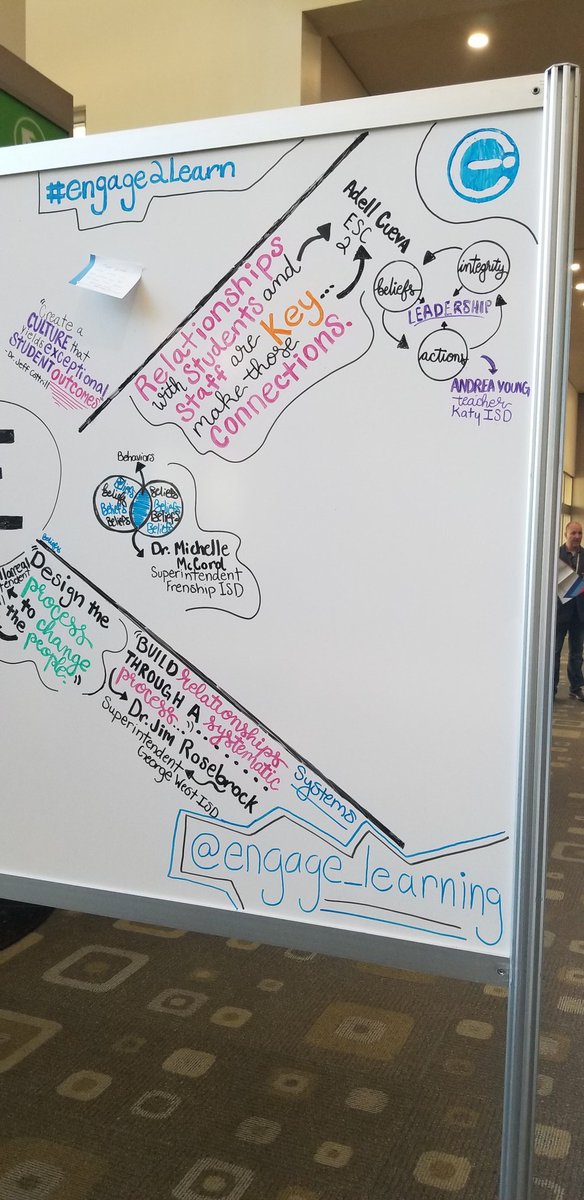 #engage2Learn
"Create a
CULTURE that
yields exceptional
STUDENT OUTCOMES"
Relationships
with Students and
Staff are Key...
make those
Connections.
Adell Cueva
ESC
2
beliefs
integrity
LEADERSHIP
actions
ANDREA YOUNG
teacher
Katy ISD
Behaviors
Beliefs
Beliefs
Beliefs
Beliefs
Beliefs
Beliefs
Beliefs
Beliefs
Dr. Michelle
McCord
Superintendent
Frenship ISD
Beliefs
"Design the
process
to change
the people."
"BUILD relationships
THROUGH A systematic
process..."
Dr. Jim Rosebrock
Superintendent
George West ISD
Systems
@engage_learning